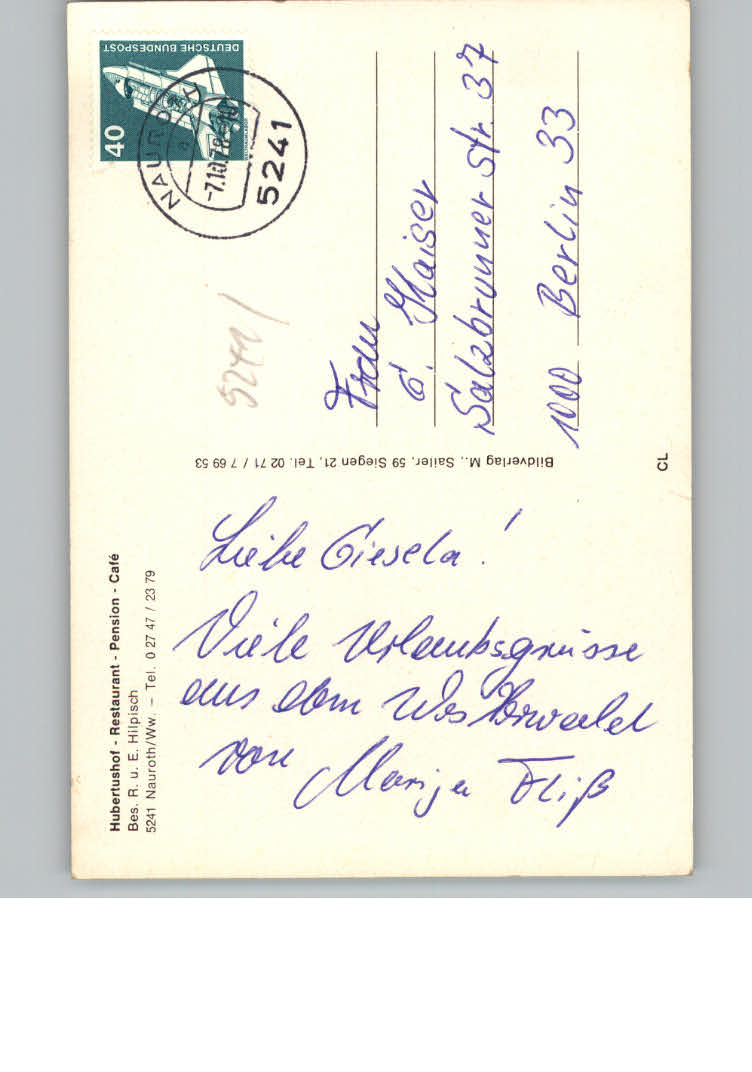 Hubertushof - Restaurant - Pension - Café
Bes. R. u. E. Hilpisch
5241 Nauroth/Ww. – Tel. 0 27 47 / 23 79
Liebe Giesela!
Viele Urlaubsgrüsse
aus dem Westerwald
von
Marija Fliß
Bildverlag M., Sailer, 59 Siegen 21, Tel. 02 71 / 7 69 53
DEUTSCHE BUNDESPOST
40
NAUROTH
a
-7.10.78-10
5241
5241/
Frau
G. Kaiser
Salzbrunner Str. 37
1000 Berlin 33
CL